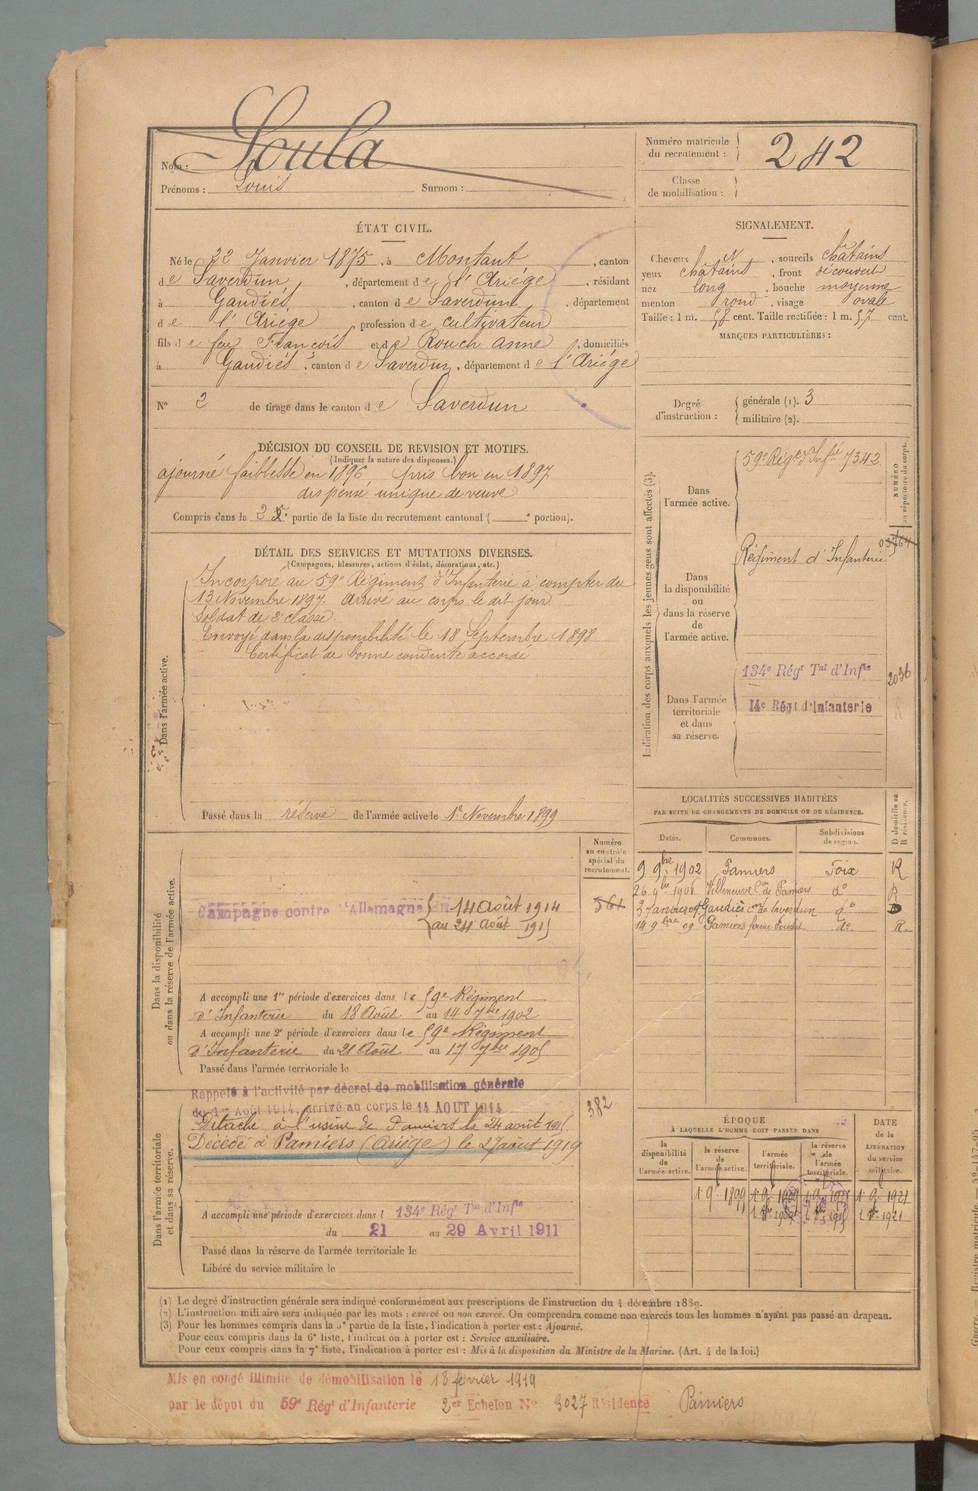 Nom : Soula
Prénoms : Louis Surnom :
Numéro matricule du recrutement : 242
Classe de mobilisation :
ÉTAT CIVIL.
Né le 22 Janvier 1875, à Montaut, canton
de Saverdun, département de l'Ariége, résidant
à Gaudiés, canton de Saverdun, département
de l'Ariége, profession de cultivateur
fils de feu François et de Rouch Anne, domiciliés
à Gaudiés, canton de Saverdun, département de l'Ariége
N° 2 de tirage dans le canton de Saverdun
SIGNALEMENT.
Cheveux N, sourcils châtains
yeux châtains, front découvert
nez long, bouche moyenne
menton rond, visage ovale
Taille : 1 m. 58 cent. Taille rectifiée : 1 m. 57 cent.
MARQUES PARTICULIÈRES :
Degré d'instruction : générale (1). 3
militaire (2).
DÉCISION DU CONSEIL DE REVISION ET MOTIFS.
(Indiquer la nature des dispenses.)
ajourné faiblesse en 1896 pris bon en 1897
dispensé unique de veuve
Compris dans la 2 e partie de la liste du recrutement cantonal ( e portion).
DÉTAIL DES SERVICES ET MUTATIONS DIVERSES.
(Campagnes, blessures, actions d'éclat, décorations, etc.)
Dans l'armée active.
Incorporé au 59e Régiment d'Infanterie à compter du
13 Novembre 1897. Arrivé au corps le dit jour
Soldat de 2e classe
Envoyé dans la disponibilité le 18 Septembre 1898
Certificat de bonne conduite accordé
Passé dans la réserve de l'armée active le 1er Novembre 1899
Indication des corps auxquels les jeunes gens sont affectés (3).
NUMÉRO au répertoire du corps.
Dans l'armée active.
59e Régt d'Infie 7342
Dans la disponibilité ou dans la réserve de l'armée active.
Régiment d'Infanterie
Dans l'armée territoriale et dans sa réserve.
134e Régt Tal d'Infie 2036
14e Régt d'Infanterie
LOCALITÉS SUCCESSIVES HABITÉES
PAR SUITE DE CHANGEMENTS DE DOMICILE OU DE RÉSIDENCE.
Dates. Communes. Subdivisions de région. D domicile ou R résidence.
9 9bre 1902 Pamiers Foix R
26 9bre 1906 Villeneuve Con de Pamiers do R
3 Janvier 09 Gaudiès con de Saverdun do D
19 9bre 09 Pamiers do R.
Numéro au contrôle spécial du recrutement.
561
Dans la disponibilité ou dans la réserve de l'armée active.
Campagne contre l'Allemagne du 14 Août 1914
au 24 Août 1915
A accompli une 1re période d'exercices dans le 59e Régiment
d'Infanterie du 18 Août au 14 7bre 1902
A accompli une 2e période d'exercices dans le 59e Régiment
d'Infanterie du 21 Août au 17 7bre 1905
Passé dans l'armée territoriale le
Dans l'armée territoriale et dans sa réserve.
Rappelé à l'activité par décret de mobilisation générale
du 1er Août 1914, arrivé au corps le 14 AOUT 1914
382
Détaché à l'usine de Pamiers le 24 août 1915
Décédé à Pamiers (Ariège) le 27 août 1919
A accompli une période d'exercices dans l 134e Régt Tal d'Infie
du 21 au 29 Avril 1911
Passé dans la réserve de l'armée territoriale le
Libéré du service militaire le
ÉPOQUE
À LAQUELLE L'HOMME DOIT PASSER DANS
la disponibilité de l'armée active. la réserve de l'armée active. l'armée territoriale. la réserve de l'armée territoriale.
DATE de la LIBÉRATION du service militaire.
(1) Le degré d'instruction générale sera indiqué conformément aux prescriptions de l'instruction du 4 décembre 1889.
(2) L'instruction militaire sera indiquée par les mots : exercé ou non exercé. On comprendra comme non exercés tous les hommes n'ayant pas passé au drapeau.
(3) Pour les hommes compris dans la 5e partie de la liste, l'indication à porter est : Ajourné.
Pour ceux compris dans la 6e liste, l'indication à porter est : Service auxiliaire.
Pour ceux compris dans la 7e liste, l'indication à porter est : Mis à la disposition du Ministre de la Marine. (Art. 4 de la loi.)
Mis en congé illimité de démobilisation le 18 février 1919
par le dépôt du 59e Régt d'Infanterie 2er Echelon N° 3027 Résidence Pamiers